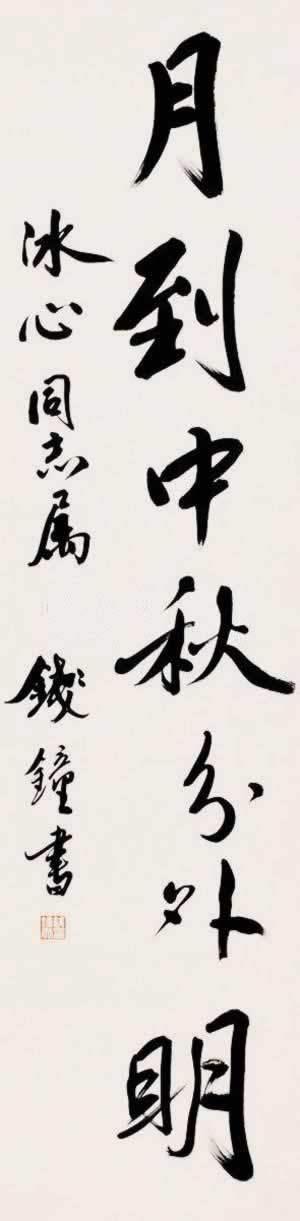 月到中秋分外明
冰心同志属 錢鍾書